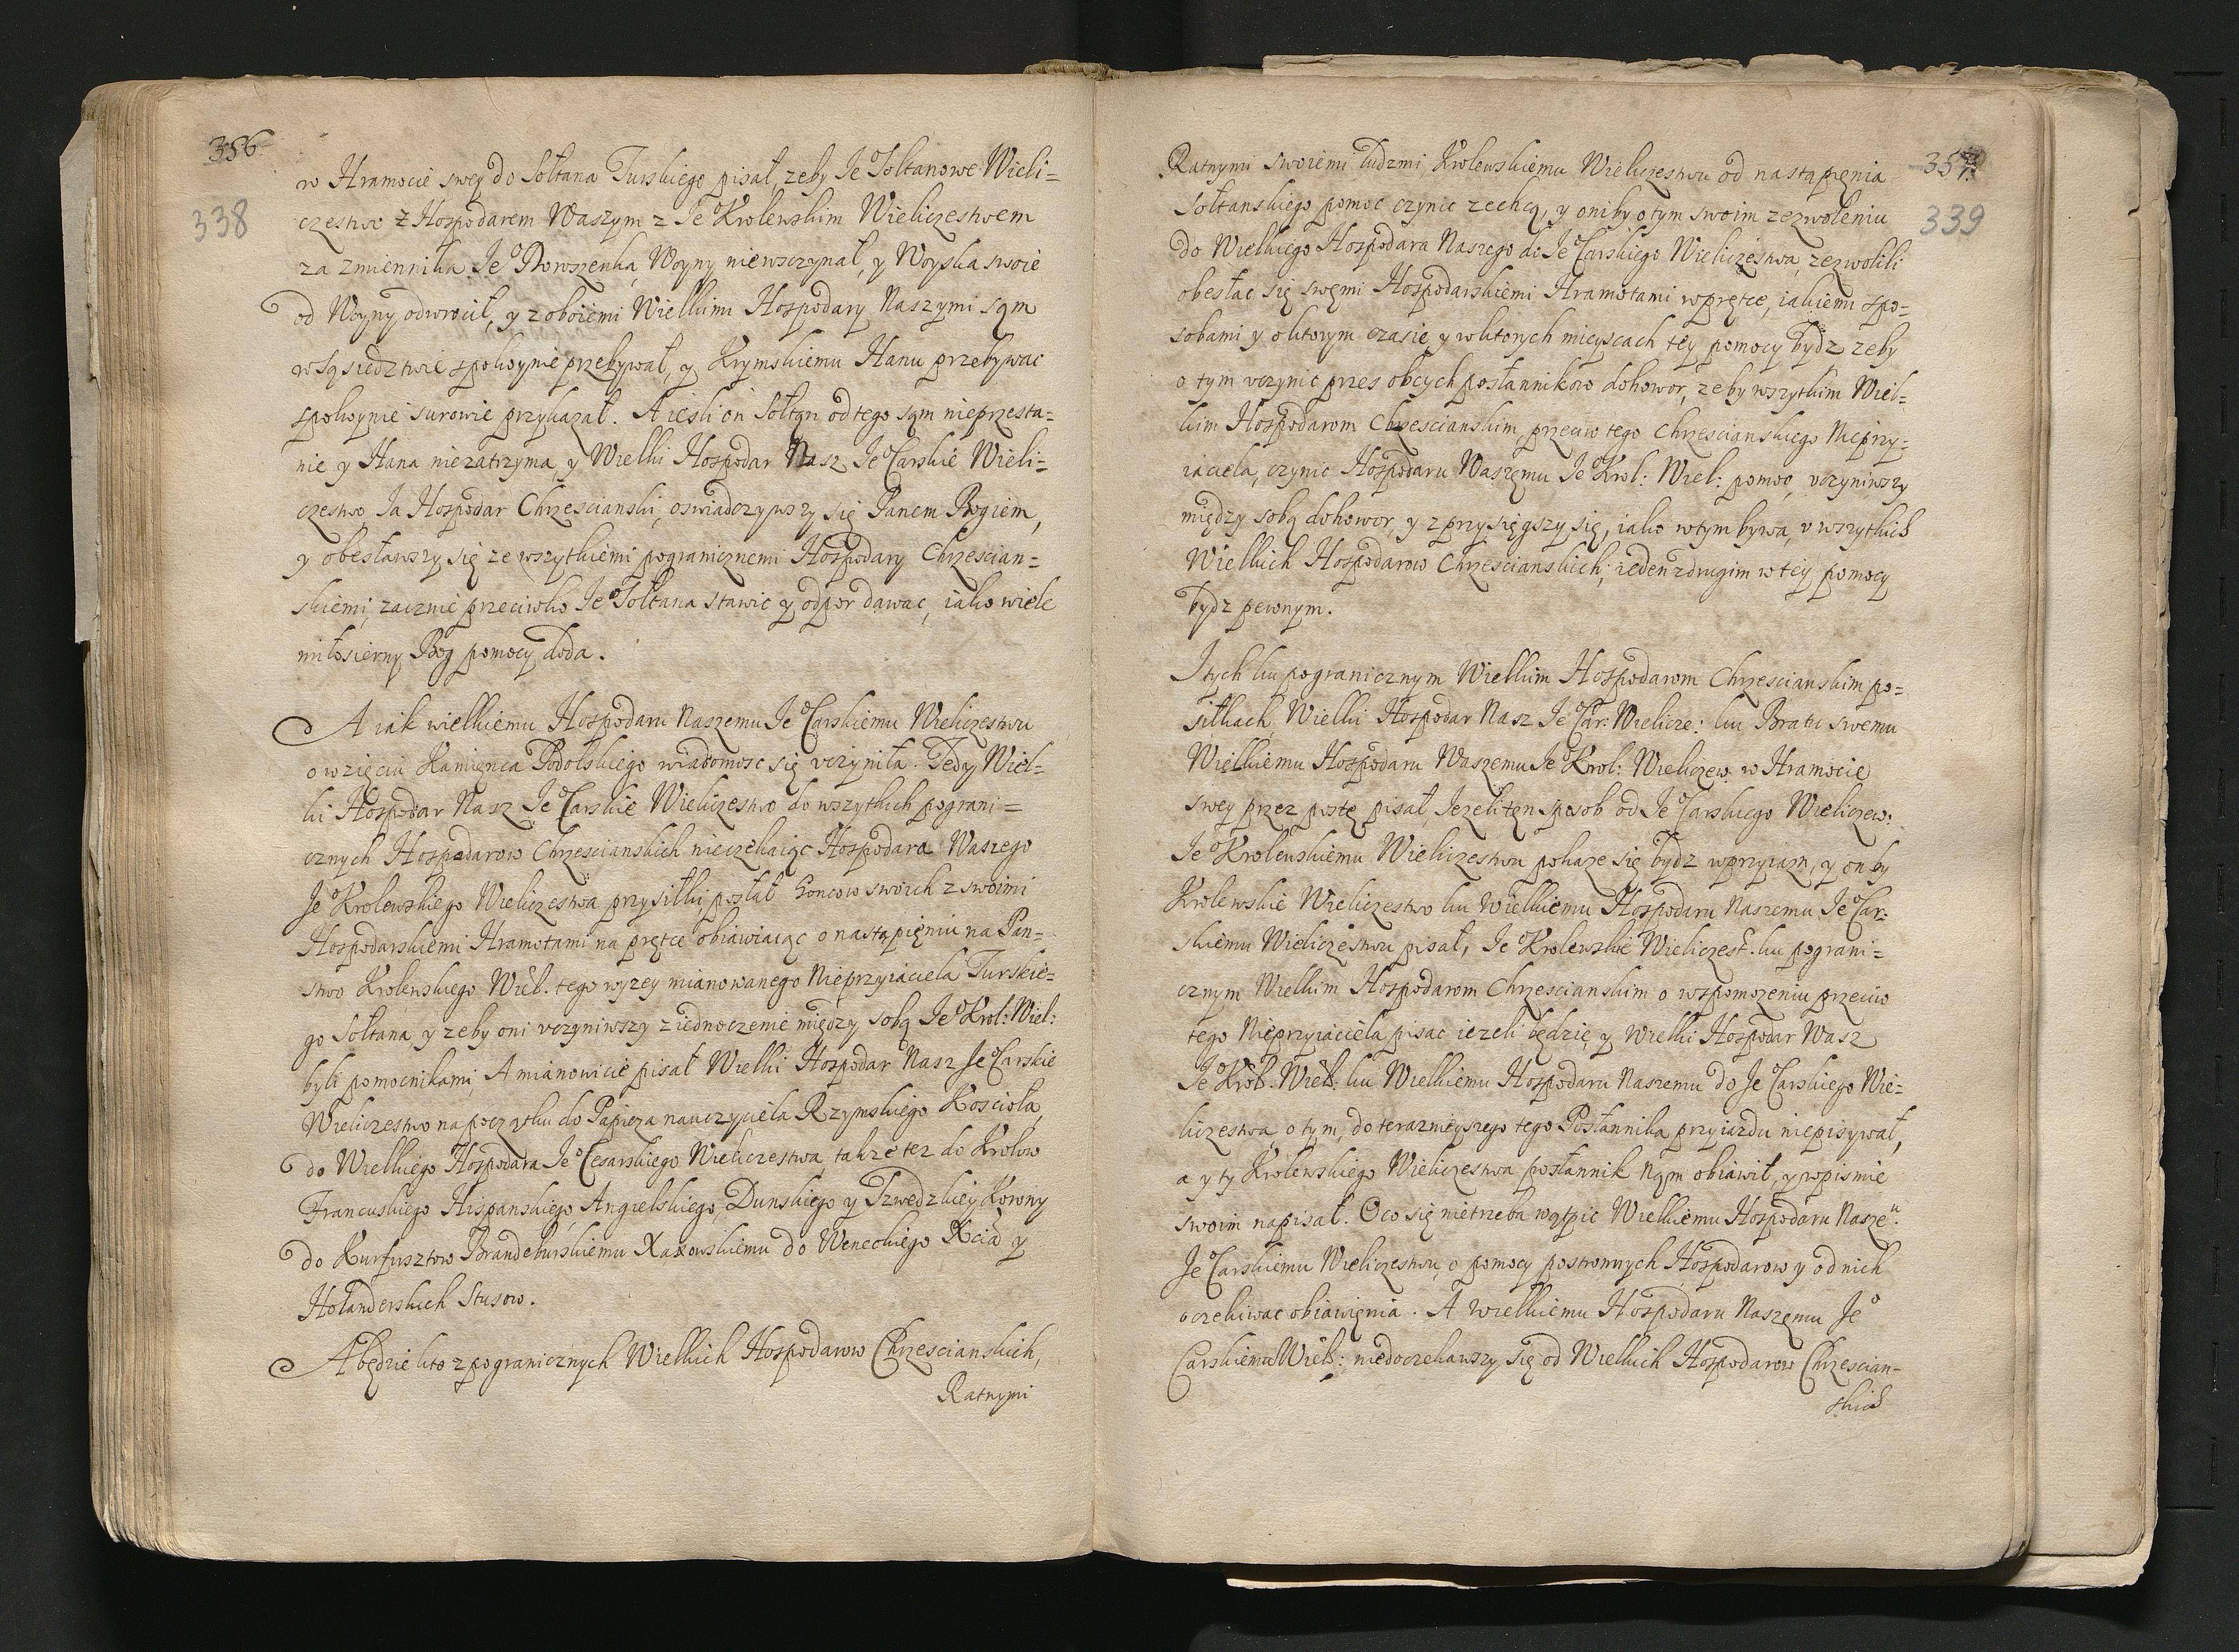 356
338
w Hramocie swey do Sołtana Turskiego pisał, zeby Jeº Sołtanowe Wieli=
czestwo z Hospodarem Waszym z Jeº Krolewskim Wieliczestwem
za zmiennika Jeº Dorszenka, Woyny niewsczynał, y Woyska swoie
od Woyny odwrocił, y z oboiemi Wielkimi Hospodary Naszymi sąm
w sąsiedztwie spokoynie przebywał, y Krymskiemu Hanu przebywac
spokoynie surowie przykazał. A iesli on Sołtan od tego sąm nieprzesta=
nie y Hana niezatrzyma, y Wielki Hospodar Nasz Jeº Carskie Wieli=
czestwo, Ja Hospodar Chrzescianski, oswiadczywszy się Panem Bogiem,
y obesławszy się ze wszytkiemi pogranicznemi Hospodary Chrzescian=
skiemi, zacznie przeciwko Jeº Sołtana stawic y odpor dawac, iako wiele
miłosierny Bog pomocy doda.
A iak wielkiemu Hospodaru Naszemu Jeº Carskiemu Wieliczestwu
o wzięciu Kamięnca Podolskiego wiadomosc się vczyniła. Tedy Wiel=
ki Hospodar Nasz Jeº Carskie Wieliczestwo do wszytkich pograni=
cznych Hospodarow Chrzescianskich nieczekaiąc Hospodara Waszego
Jeº Krolewskiego Wieliczestwa przysiłki, posłał Goncow swoich z swoimi
Hospodarskiemi Hramotami na prętce obiawiaiąc o nastąpięniu na Pan=
stwo Krolewskiego Wiel. tego wyzey mianowanego Nieprzyiaciela Turskie=
go Sołtana, y zeby oni vczyniwszy ziednoczenie między sobą Jeº Krol: Wiel:
byli pomocnikami, A mianowicie pisał Wielki Hospodar Nasz Jeº Carskie
Wieliczestwo napoczątku do Papieza nauczyciela Rzymskiego Koscioła,
do Wielkiego Hospodara Jeº Cesarskiego Wieliczestwa, takze tez do Krolow
Francuskiego Hispanskiego, Angielskiego, Dunskiego y Szwedzkiey Korony
do Kurfusztow Brandeburskiemu Xaxowskiemu do Weneckiego Xcia y
Holanderskich Stusow.
A będzie kto z pogranicznych Wielkich Hospodarow Chrzescianskich,
Ratnymi
357.
339
Ratnymi swoiemi ludzmi, Krolewskiemu Wieliczestwu od nastąpęnia
Sołtanskiego pomoc czynic zechcą, y oniby o tym swoim zezwoleniu
do Wielkiego Hospodara Naszego do Jeº Carskiego Wieliczestwa, zezwolili
obesłac się swęmi Hospodarskiemi Hramotami wprętce, iakiemi spo=
sobami y oktorym czasie y wktorych mieyscach tey pomocy bydz zeby
o tym vczynic przes obcych posłannikow dohowor, zeby wszytkim Wiel=
kim Hospodarom Chrzescianskim, przeciw tego Chrzescianskiego Nieprzy=
iaciela, czynic Hospodaru Waszęmu Jeº Krol: Wiel: pomoc, vczyniwszy
między sobą dohowor, y z przysięgszy się, iako w tym bywa, v wszytkich
Wielkich Hospodarow Chrzescianskich, ieden z drugim w tey pomocy
bydz pewnym.
I tych ku pogranicznym Wielkim Hospodarom Chrzescianskim po=
siłkach, Wielki Hospodar Nasz Jeº Car: Wielicze: ku Bratu swemu
Wielkiemu Hospodaru Waszemu Jeº Krol: Wieliczew: w Hramocie
swey przez postę pisał, Jezeli ten sposob od Jeº Carskiego Wieliczew:
Jeº Krolewskiemu Wieliczestwu pokaze się bydz wprzyiazn, y on by
Krolewskie Wieliczestwo ku Wielkiemu Hospodaru Naszemu Jeº Car:
skiemu Wieliczestwu pisał, Jeº Krolewskie Wieliczest. ku pograni=
cznym Wielkim Hospodarom Chrzescianskim o wspomozeniu przeciw
tego Nieprzyiaciela pisac iezeli będzie, y Wielki Hospodar Wasz
Jeº Krol. Wiel: ku Wielkiemu Hospodaru Naszemu do Jeº Carskiego Wie=
liczestwa, o tym, do teraznieyszego tego Posłannika przyiazdu niepisywał,
a y ty Krolewskiego Wieliczestwa posłannik Nąm obiawił, y w pismie
swoim napisał. O co się nietrzeba wątpic Wielkiemu Hospodaru Nasze.
Jeº Carskiemu Wieliczestwu, o pomocy postronnych Hospodarow y od nich
oczekiwac obiawięnia. A wielkiemu Hospodaru Naszęmu Jeº
Carskiemu Wiel: niedoczekawszy się od Wielkich Hospodarow Chrzescian=
skich